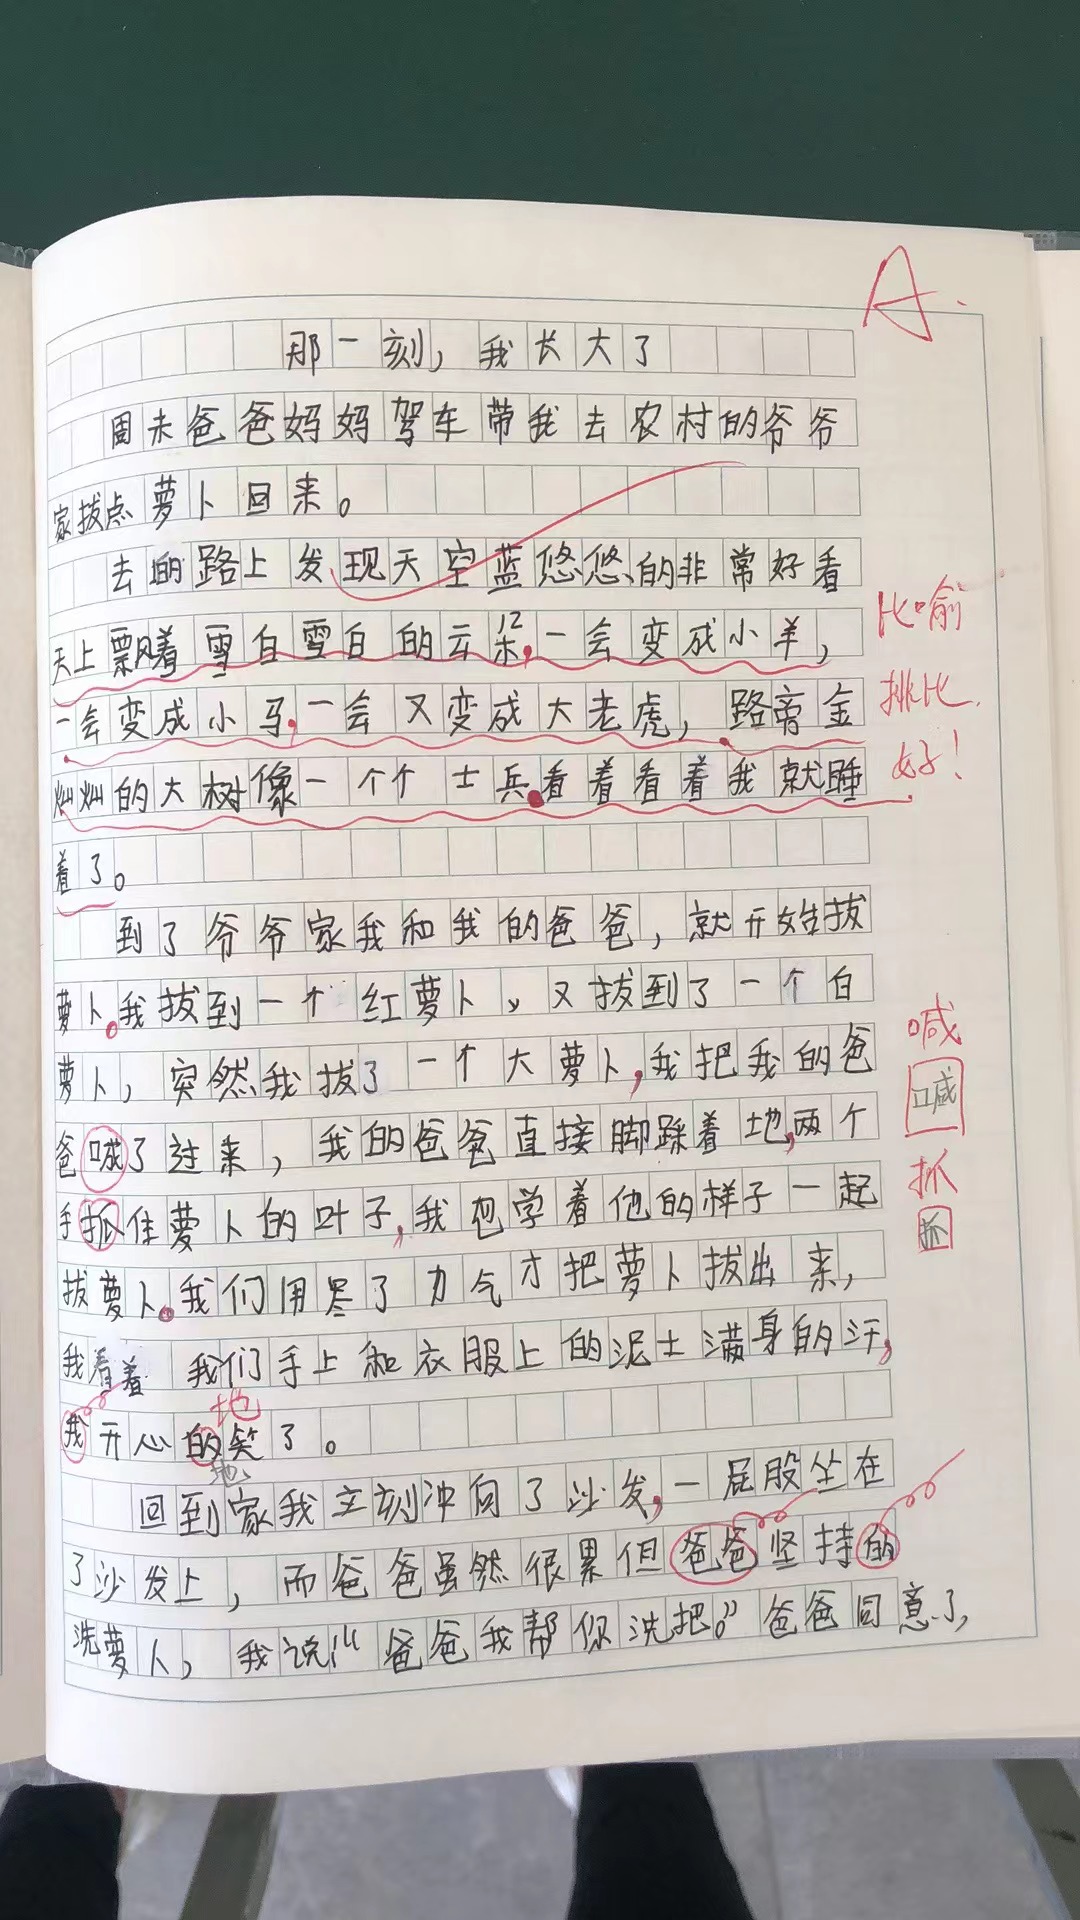 A.
那一刻，我长大了
周末爸爸妈妈驾车带我去农村的爷爷
家拔点萝卜回来。
去的路上发现天空蓝悠悠的非常好看
天上飘着雪白雪白的云朵，一会变成小羊，
一会变成小马，一会又变成大老虎，路旁金
灿灿的大树像一个个士兵。看着看着我就睡
着了。
比喻
排比
好！
到了爷爷家我和我的爸爸，就开始拔
萝卜。我拔到一个红萝卜，又拔到了一个白
萝卜，突然我拔了一个大萝卜，我把我的爸
爸喊了过来，我的爸爸直接脚踩着地，两个
手抓住萝卜的叶子，我也学着他的样子一起
拔萝卜。我们用尽了力气才把萝卜拔出来，
我看着我们手上和衣服上的泥土满身的汗，
地
我开心的笑了。
地
喊
喊
抓
抓
回到家我立刻冲向了沙发，一屁股坐在
了沙发上，而爸爸虽然很累但爸爸坚持的
洗萝卜，我说：“爸爸我帮你洗把。”爸爸同意了，